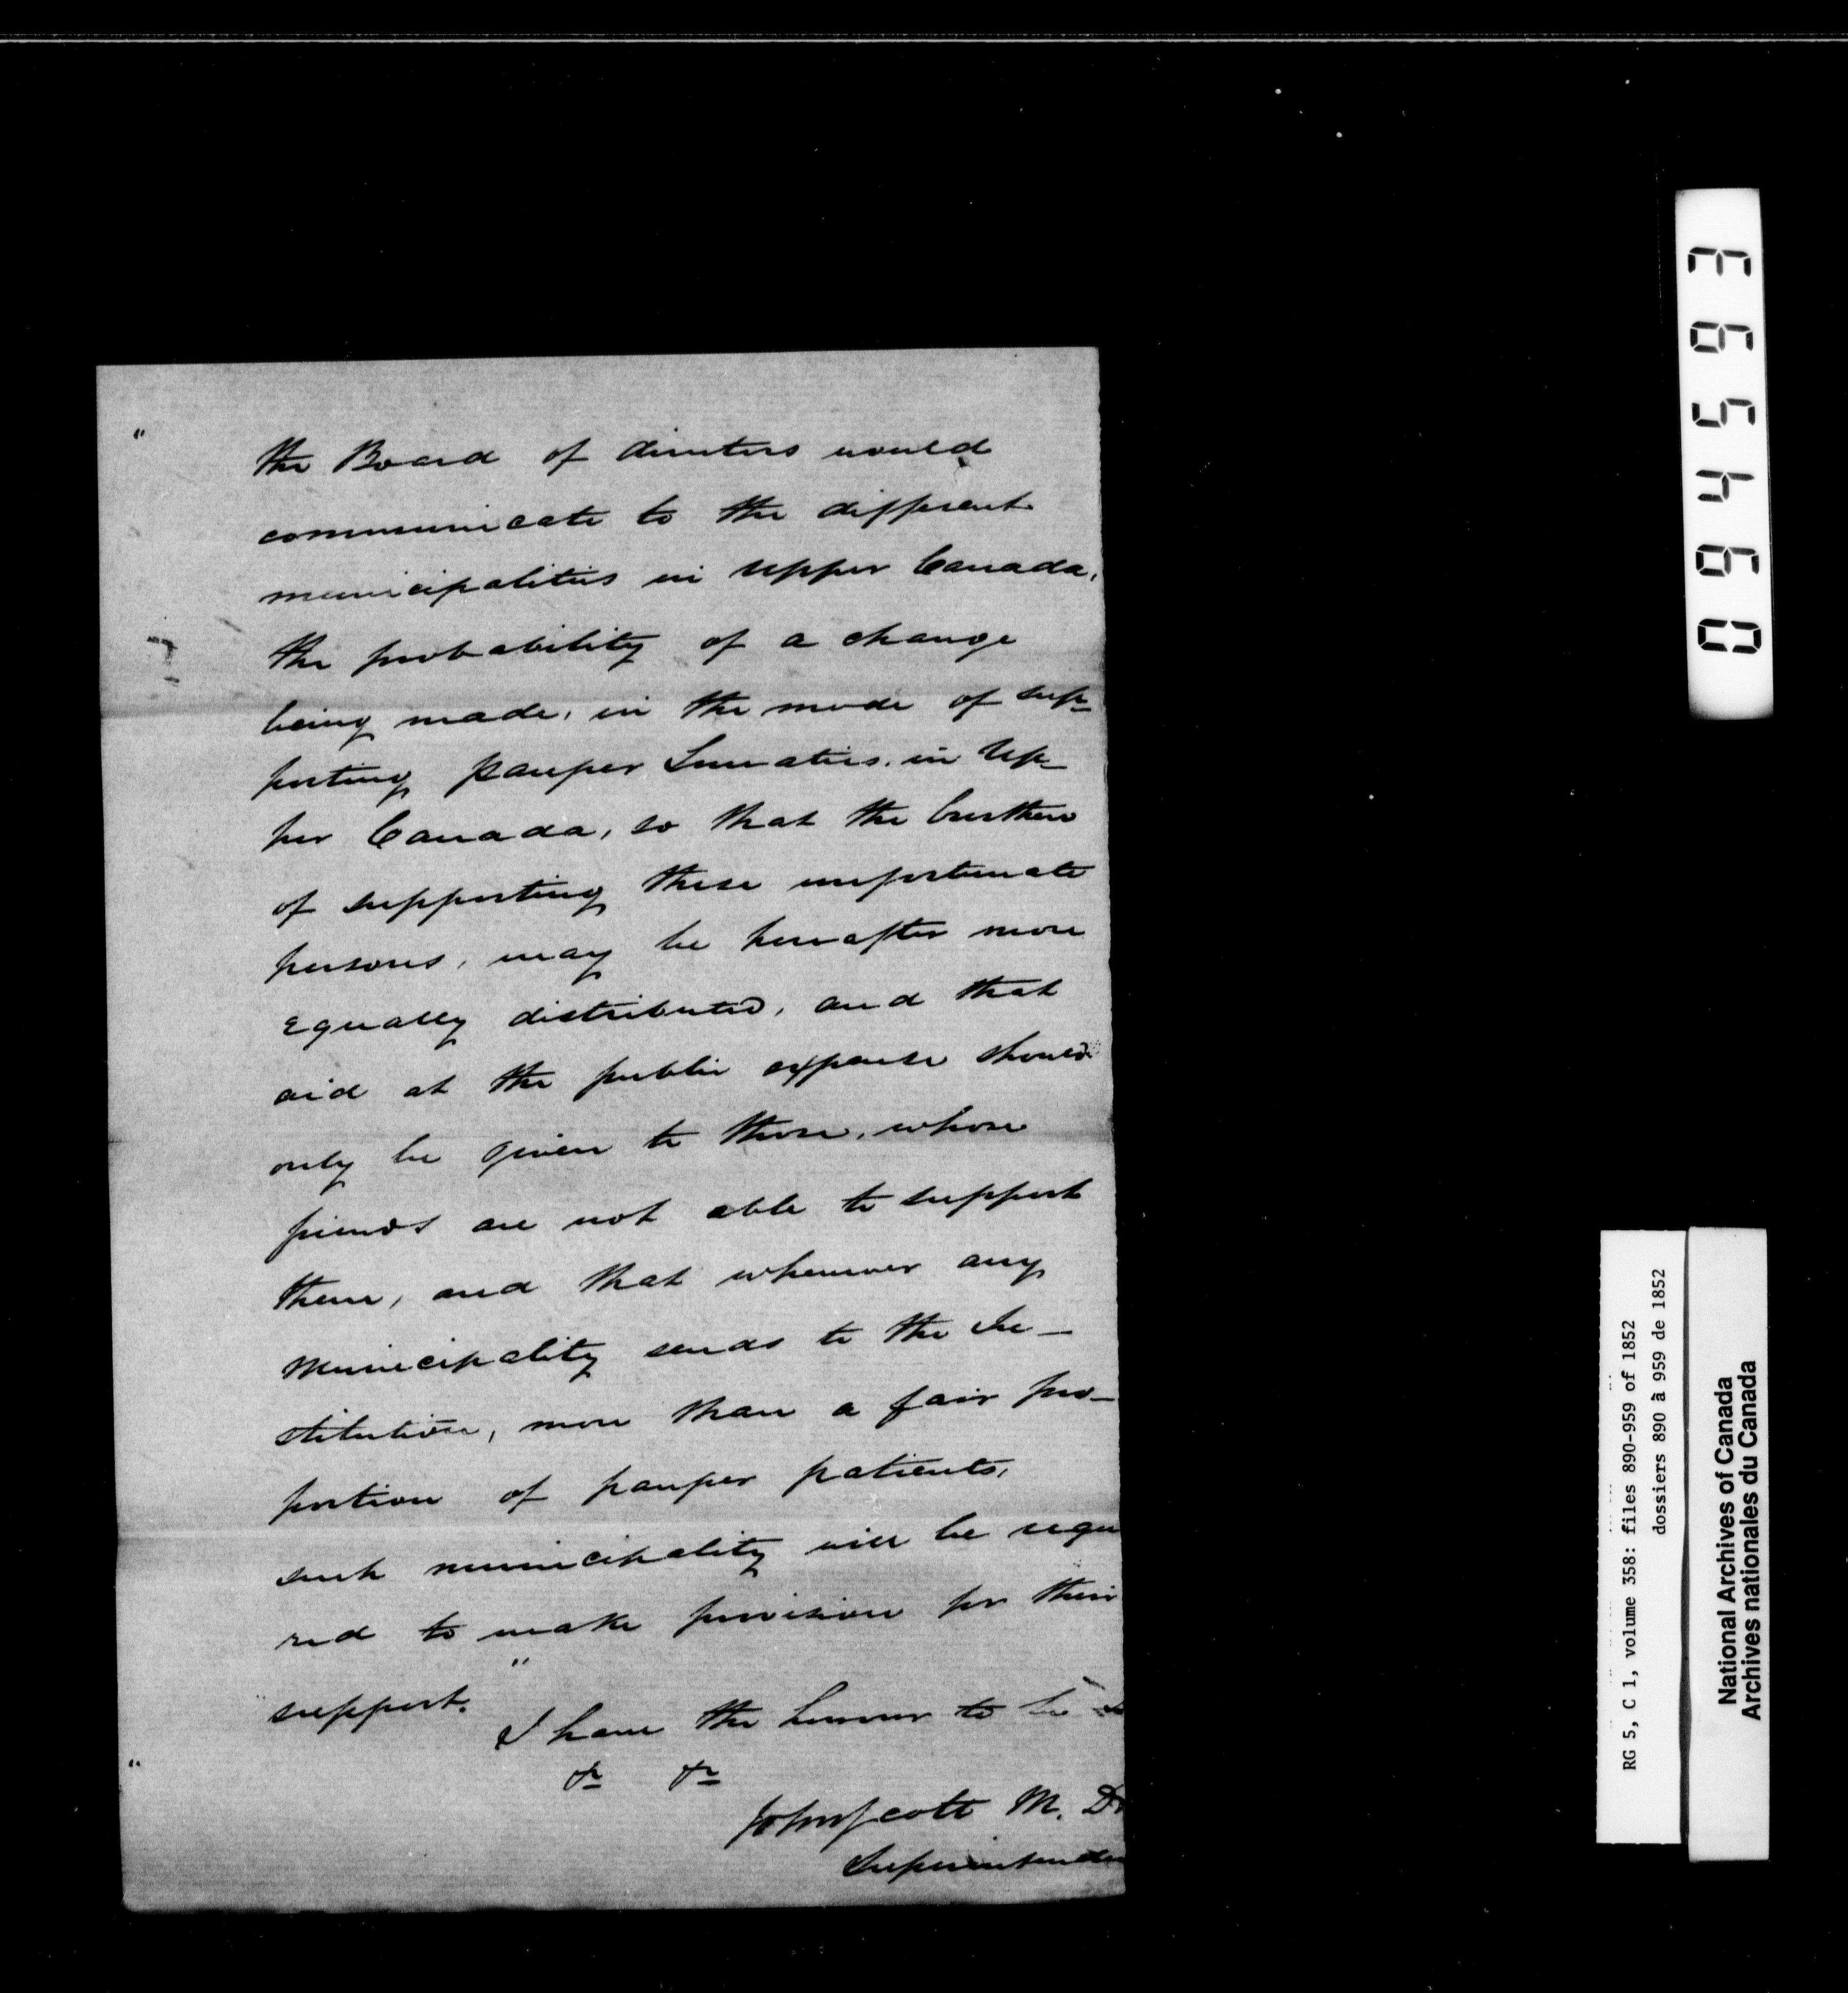 "
the Board of directors would
communicate to the different
municipalities in Upper Canada,
the probability of a change
being made, in the mode of sup-
porting pauper Lunatics in Up-
per Canada, so that the burthen
of supporting these unfortunate
persons, may be hereafter more
equally distributed, and that
aid at the public expense should
only be given to those, whose
friends are not able to support
them, and that whenever any
Municipality sends to the In-
stitution, more than a fair pro-
portion of pauper patients,
such municipality will be requi
red to make provision for their
support."
" I have the honour to be
&c &c
John Scott M. D
Superintenden
094593
RG 5, C 1, volume 358: files 890-959 of 1852
dossiers 890 à 959 de 1852
National Archives of Canada
Archives nationales du Canada